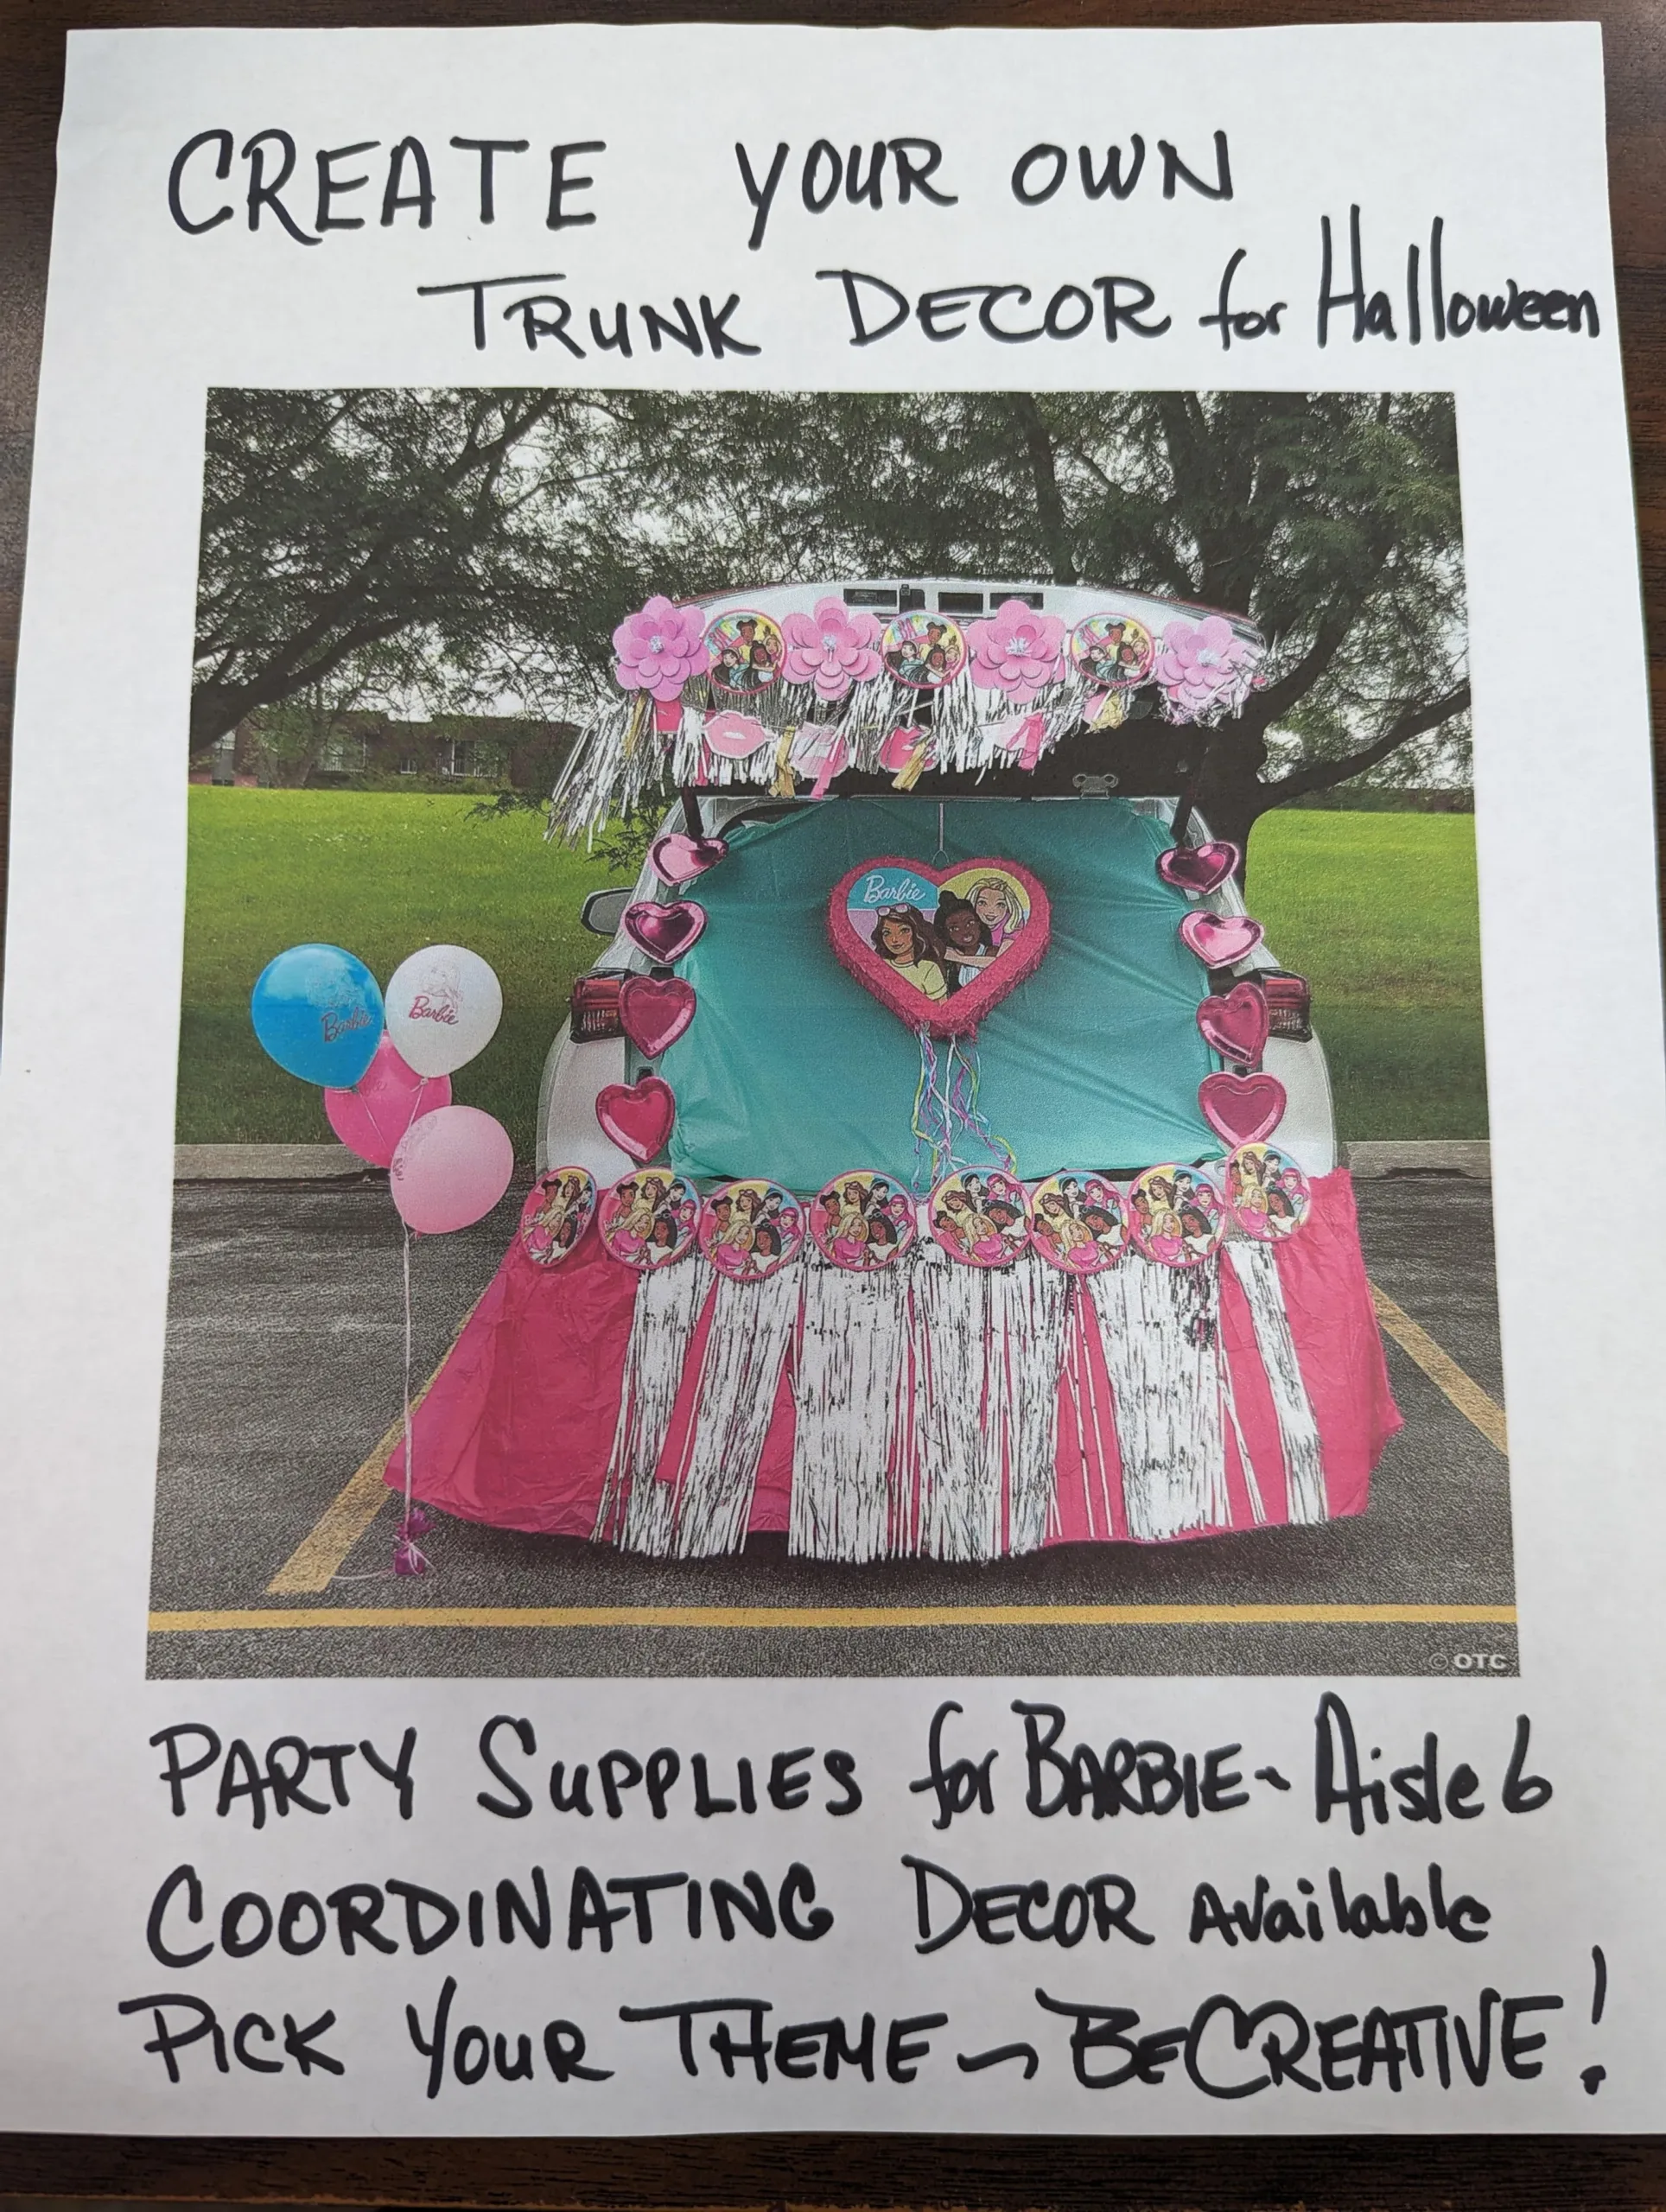 CREATE YOUR OWN
TRUNK DECOR for Halloween
Barbie
Barbie
Barbie
© OTC
PARTY SUPPLIES for BARBIE - Aisle 6
COORDINATING DECOR Available
PICK YOUR THEME ~ BE CREATIVE!